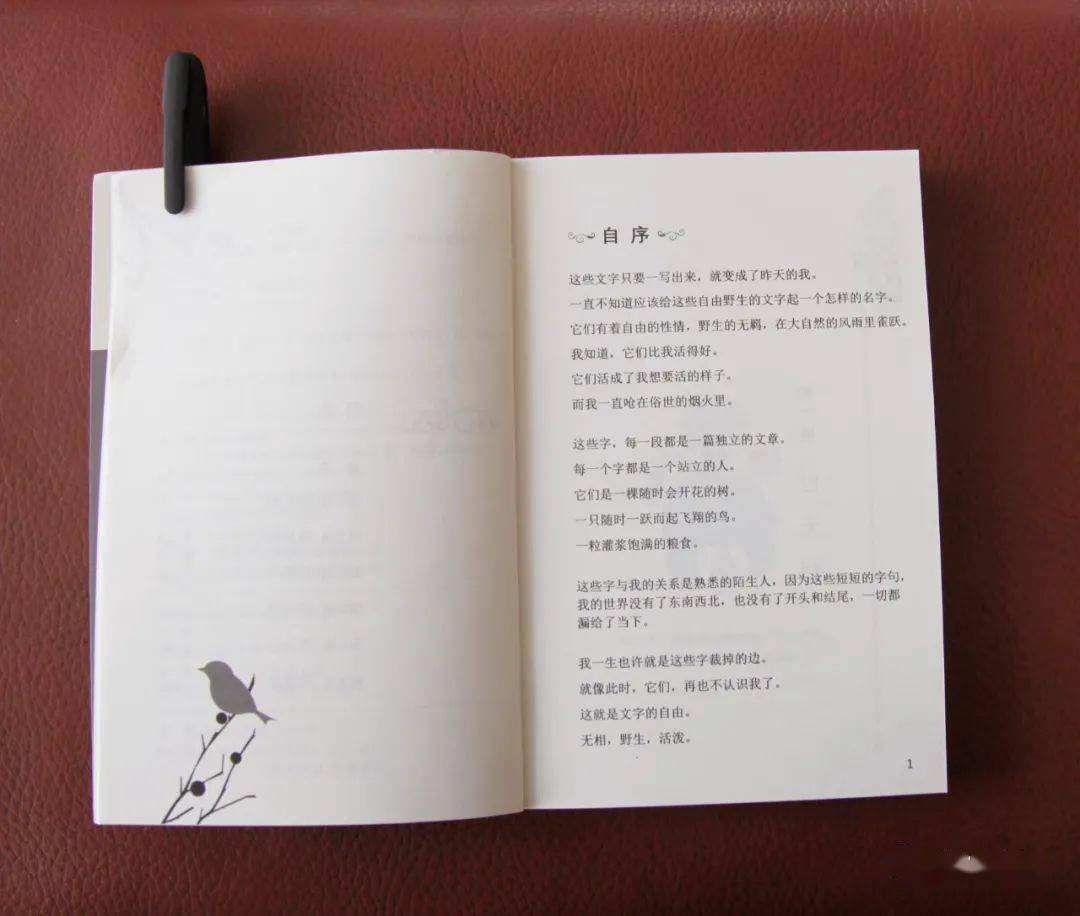 自 序
这些文字只要一写出来，就变成了昨天的我。
一直不知道应该给这些自由野生的文字起一个怎样的名字。
它们有着自由的性情，野生的无羁，在大自然的风雨里雀跃。
我知道，它们比我活得好。
它们活成了我想要活的样子。
而我一直呛在俗世的烟火里。
这些字，每一段都是一篇独立的文章。
每一个字都是一个站立的人。
它们是一棵随时会开花的树。
一只随时一跃而起飞翔的鸟。
一粒灌浆饱满的粮食。
这些字与我的关系是熟悉的陌生人，因为这些短短的字句，
我的世界没有了东南西北，也没有了开头和结尾，一切都
漏给了当下。
我一生也许就是这些字裁掉的边。
就像此时，它们，再也不认识我了。
这就是文字的自由。
无相，野生，活泼。
1